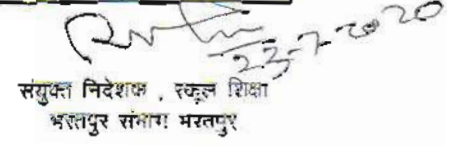 23-7-2020
संयुक्त निदेशक , स्कूल शिक्षा
भरतपुर संभाग भरतपुर